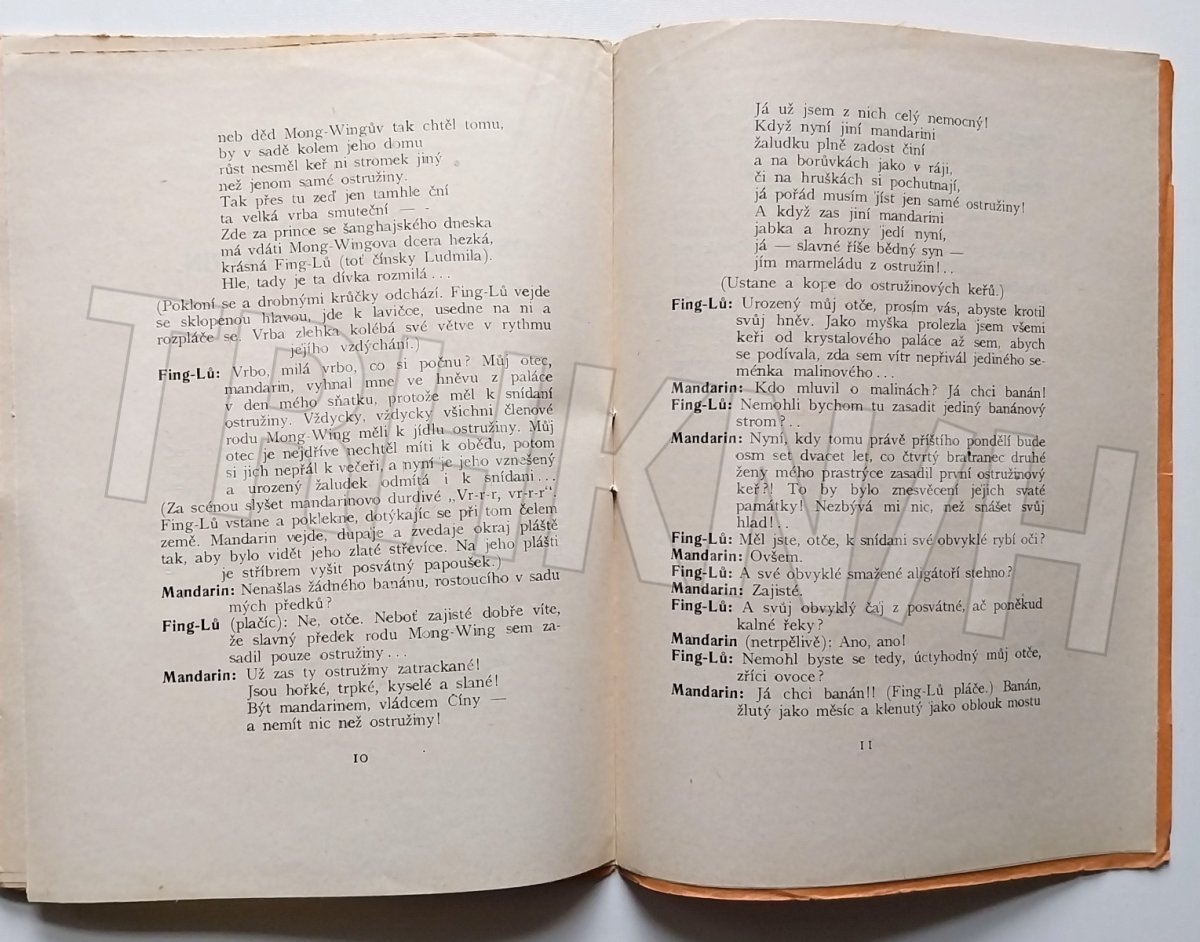 neb děd Mong-Wingův tak chtěl tomu,
by v sadě kolem jeho domu
růst nesměl keř ni stromek jiný
než jenom samé ostružiny.
Tak přes tu zeď jen tamhle ční
ta velká vrba smuteční — -
Zde za prince se šanghajského dneska
má vdáti Mong-Wingova dcera hezká,
krásná Fing-Lů (toť čínsky Ludmila).
Hle, tady je ta dívka rozmilá...
(Pokloní se a drobnými krůčky odchází. Fing-Lů vejde
se sklopenou hlavou, jde k lavičce, usedne na ni a
rozpláče se. Vrba zlehka kolébá své větve v rythmu
jejího vzdýchání.)
Fing-Lů: Vrbo, milá vrbo, co si počnu? Můj otec,
mandarin, vyhnal mne ve hněvu z paláce
v den mého sňatku, protože měl k snídani
ostružiny. Vždycky, vždycky všichni členové
rodu Mong-Wing měli k jídlu ostružiny. Můj
otec je nejdříve nechtěl míti k obědu, potom
si jich nepřál k večeři, a nyní je jeho vznešený
a urozený žaludek odmítá i k snídani...
(Za scénou slyšet mandarinovo durdivé „Vr-r-r, vr-r-r“.
Fing-Lů vstane a poklekne, dotýkajíc se při tom čelem
země. Mandarin vejde, dupaje a zvedaje okraj pláště
tak, aby bylo vidět jeho zlaté střevíce. Na jeho plášti
je stříbrem vyšit posvátný papoušek.)
Mandarin: Nenašlas žádného banánu, rostoucího v sadu
mých předků?
Fing-Lů (plačíc): Ne, otče. Neboť zajisté dobře víte,
že slavný předek rodu Mong-Wing sem za-
sadil pouze ostružiny...
Mandarin: Už zas ty ostružiny zatrackané!
Jsou hořké, trpké, kyselé a slané!
Být mandarinem, vládcem Číny —
a nemít nic než ostružiny!
10
Já už jsem z nich celý nemocný!
Když nyní jiní mandarini
žaludku plně zadost činí
a na borůvkách jako v ráji,
či na hruškách si pochutnají,
já pořád musím jíst jen samé ostružiny!
A když zas jiní mandarini
jabka a hrozny jedí nyní,
já — slavné říše bědný syn —
jím marmeládu z ostružin!..
(Ustane a kope do ostružinových keřů.)
Fing-Lů: Urozený můj otče, prosím vás, abyste krotil
svůj hněv. Jako myška prolezla jsem všemi
keři od krystalového paláce až sem, abych
se podívala, zda sem vítr nepřivál jediného se-
ménka malinového...
Mandarin: Kdo mluvil o malinách? Já chci banán!
Fing-Lů: Nemohli bychom tu zasadit jediný banánový
strom?..
Mandarin: Nyní, kdy tomu právě příštího pondělí bude
osm set dvacet let, co čtvrtý bratranec druhé
ženy mého prastrýce zasadil první ostružinový
keř?! To by bylo znesvěcení jejich svaté
památky! Nezbývá mi nic, než snášet svůj
hlad!..
Fing-Lů: Měl jste, otče, k snídani své obvyklé rybí oči?
Mandarin: Ovšem.
Fing-Lů: A své obvyklé smažené aligátoří stehno?
Mandarin: Zajisté.
Fing-Lů: A svůj obvyklý čaj z posvátné, ač poněkud
kalné řeky?
Mandarin (netrpělivě): Ano, ano!
Fing-Lů: Nemohl byste se tedy, úctyhodný můj otče,
zříci ovoce?
Mandarin: Já chci banán!! (Fing-Lů pláče.) Banán,
žlutý jako měsíc a klenutý jako oblouk mostu
11
TRHKNIH